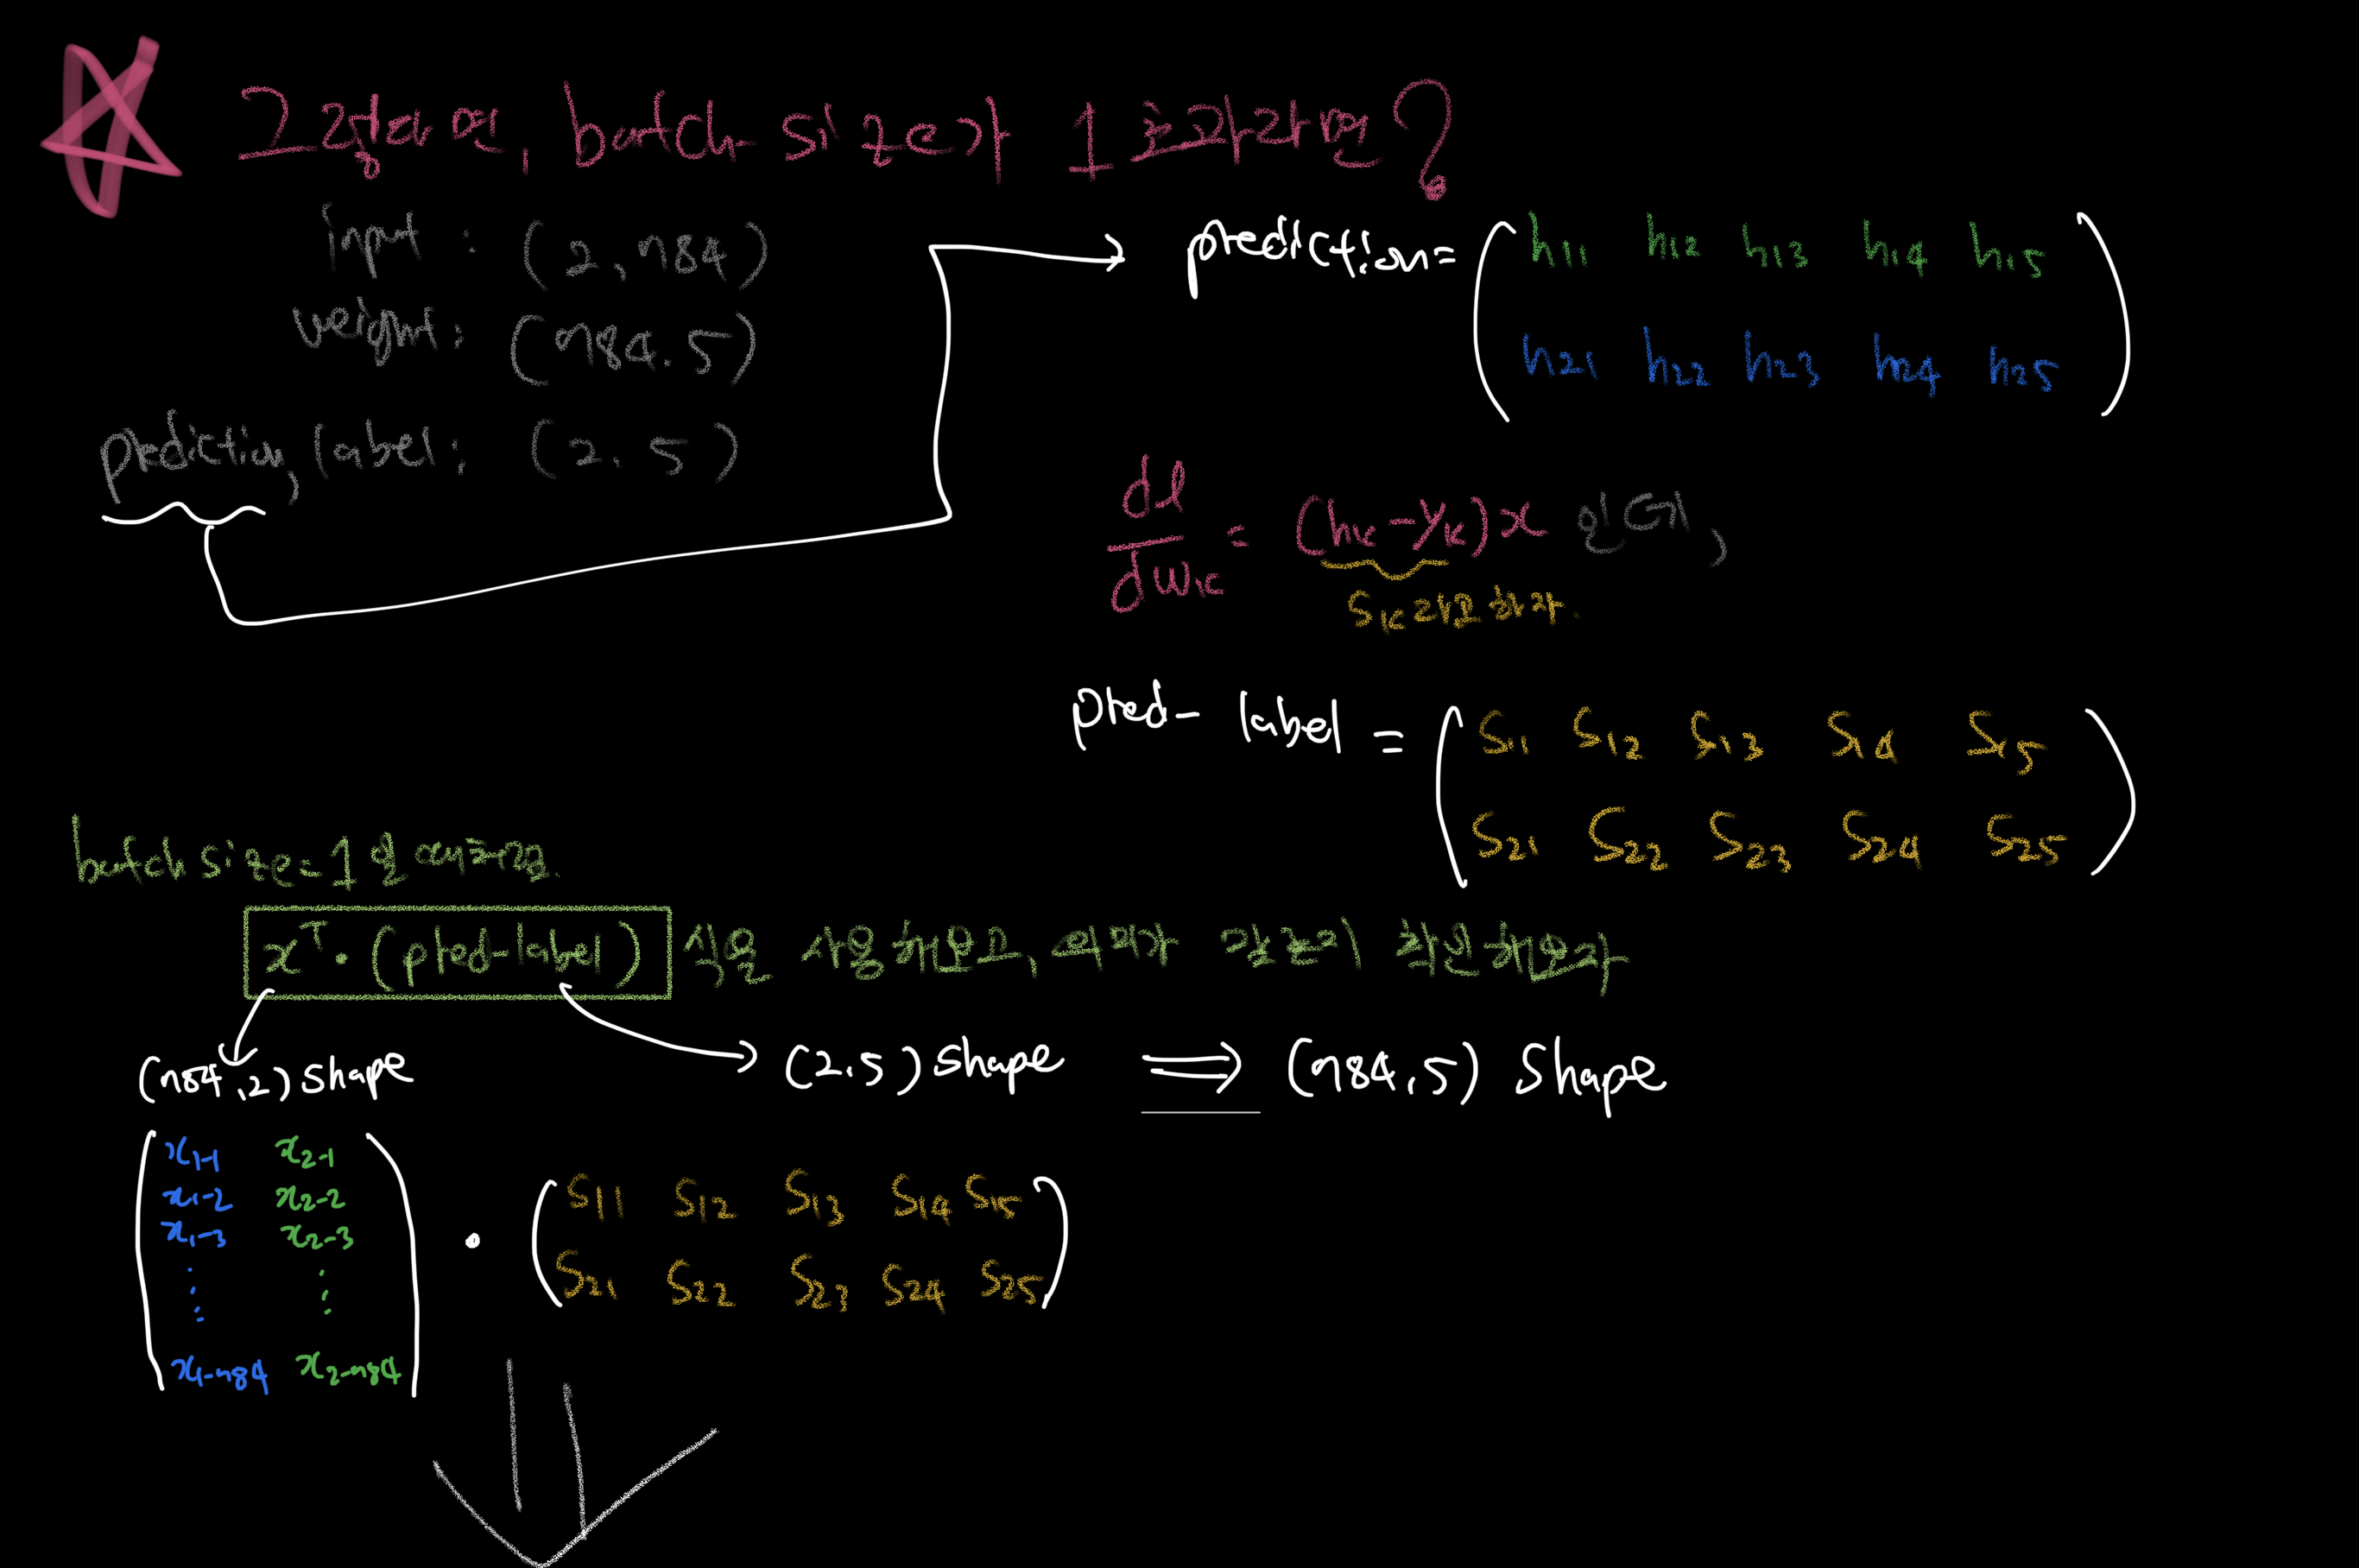 그렇다면, batch size가 1 초과라면?
input : (2, 784)
weight : (784, 5)
prediction, label : (2, 5)
prediction = ( h11 h12 h13 h14 h15
h21 h22 h23 h24 h25 )
dl/dwk = (hk - yk)x 일 때,
Sk라고 하자.
pred - label = ( S11 S12 S13 S14 S15
S21 S22 S23 S24 S25 )
batch size = 1 일 때처럼
x^T · (pred - label) 식을 사용해보고, 의미가 같은지 확인해보자
(784, 2) shape → (2, 5) shape ⇒ (784, 5) shape
( x1-1 x2-1
x1-2 x2-2
x1-3 x2-3
⋮ ⋮
x1-784 x2-784 )
· ( S11 S12 S13 S14 S15
S21 S22 S23 S24 S25 )